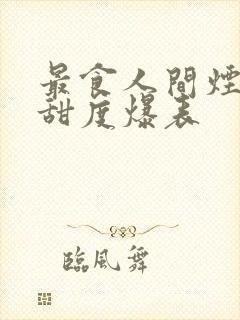 最食人間煙
甜度爆表
臨風舞